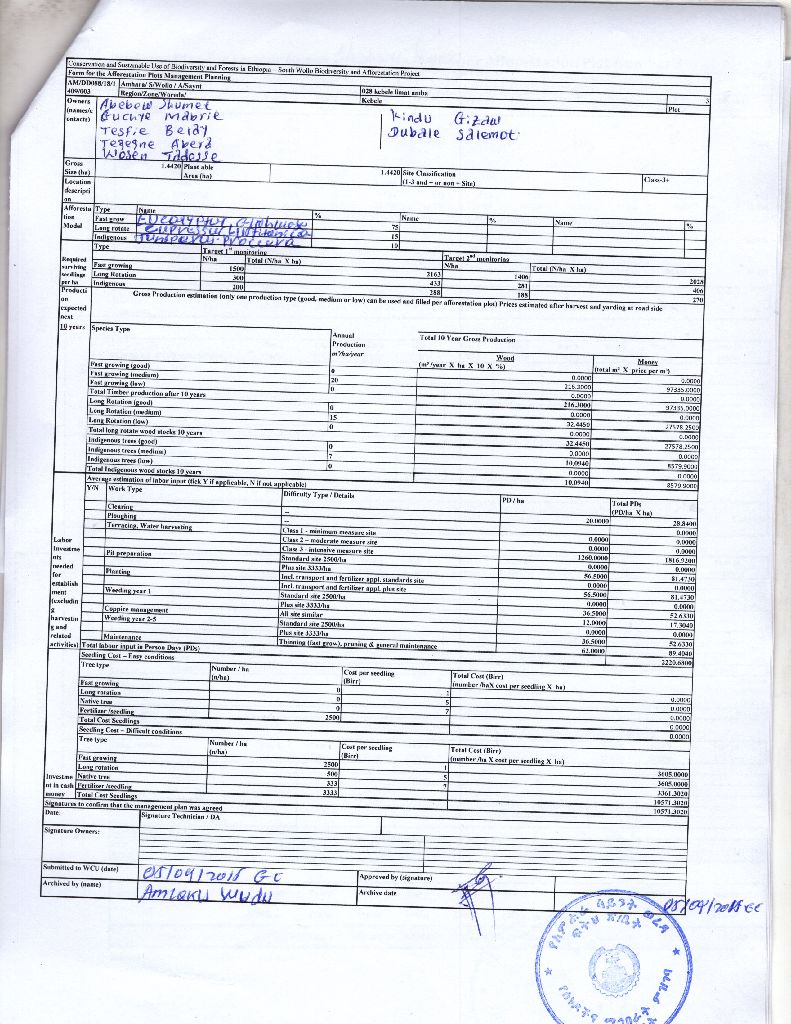 Conservation and Sustainable Use of Biodiversity and Forests in Ethiopia - South Wollo Biodiversity and Afforestation Project
Form for the Afforestation Plots Management Planning
AM/DD088/18/1 409/003 Amhara/ S/Wollo / A/Saynt 028 kebele limat amba 3
Region/Zone/Woreda/ Kebele Plot
Owners (names/contacts)
Abebow Shumet
Guchye Mabrie
Tesfie Belay
Tegegne Abera
Wosen Tadesse
Hindu Gizaw
Dubale Salemot
Gross Size (ha) 1.4420 Plant able Area (ha) 1.4420 Site Classification (1-3 and + or non - Site) Class-3+
Location description
Afforestation Model
Type Name % Name % Name %
Fast grow Eucalyptus Globulus 75
Long rotate Cupressus Lusitanica 15
Indigenous Juniperus Procera 10
Required surviving seedlings per ha
Type Target 1st monitoring Target 2nd monitoring
N/ha Total (N/ha X ha) N/ha Total (N/ha X ha)
Fast growing 1500 2163 1406 2028
Long Rotation 300 433 281 406
Indigenous 200 288 188 270
Production expected next 10 years
Gross Production estimation (only one production type (good, medium or low) can be used and filled per afforestation plot) Prices estimated after harvest and yarding at road side
Species Type Annual Production m³/ha/year Total 10 Year Gross Production
Wood (m³/year X ha X 10 X %) Money (total m³ X price per m³)
Fast growing (good) 0 0.0000 0.0000
Fast growing (medium) 20 216.3000 97335.0000
Fast growing (low) 0 0.0000 0.0000
Total Timber production after 10 years 216.3000 97335.0000
Long Rotation (good) 0 0.0000 0.0000
Long Rotation (medium) 15 32.4450 27578.2500
Long Rotation (low) 0 0.0000 0.0000
Total long rotate wood stocks 10 years 32.4450 27578.2500
Indigenous trees (good) 0 0.0000 0.0000
Indigenous trees (medium) 7 10.0940 8579.9000
Indigenous trees (low) 0 0.0000 0.0000
Total Indigenous wood stocks 10 years 10.0940 8579.9000
Average estimation of labor input (tick Y if applicable, N if not applicable)
Y/N Work Type Difficulty Type / Details PD / ha Total PDs (PD/ha X ha)
Labor Investments needed for establishment (excluding harvesting and related activities)
Clearing -- 20.0000 28.8400
Ploughing -- 0.0000
Terracing, Water harvesting Class 1 - minimum measure site 0.0000 0.0000
Class 2 - moderate measure site 0.0000 0.0000
Class 3 - intensive measure site 1260.0000 1816.9200
Pit preparation Standard site 2500/ha 0.0000 0.0000
Plus site 3333/ha 56.5000 81.4730
Planting Incl. transport and fertilizer appl. standards site 0.0000 0.0000
Incl. transport and fertilizer appl. plus site 56.5000 81.4730
Weeding year 1 Standard site 2500/ha 0.0000 0.0000
Plus site 3333/ha 36.5000 52.6330
Coppice management All site similar 12.0000 17.3040
Weeding year 2-5 Standard site 2500/ha 0.0000 0.0000
Plus site 3333/ha 36.5000 52.6330
Maintenance Thinning (fast grow), pruning & general maintenance 62.0000 89.4040
Total labour input in Person Days (PDs) 2220.6800
Seedling Cost - Easy conditions
Tree type Number / ha (n/ha) Cost per seedling (Birr) Total Cost (Birr) (number /haX cost per seedling X ha)
Fast growing 0 1 0.0000
Long rotation 0 5 0.0000
Native tree 0 7 0.0000
Fertilizer /seedling 2500 0.0000
Total Cost Seedlings
Seedling Cost - Difficult conditions
Tree type Number / ha (n/ha) Cost per seedling (Birr) Total Cost (Birr) (number /ha X cost per seedling X ha)
Investment in cash money
Fast growing 2500 1 3605.0000
Long rotation 500 5 3605.0000
Native tree 333 7 3361.3020
Fertilizer /seedling 3333 10571.3020
Total Cost Seedlings 10571.3020
Signatures to confirm that the management plan was agreed
Date: Signature Technician / DA
Signature Owners:
Submitted to WCU (date) 05/09/2018 GC Approved by (signature)
Archived by (name) Amlaku Wudu Archive date 05/09/2018 GC